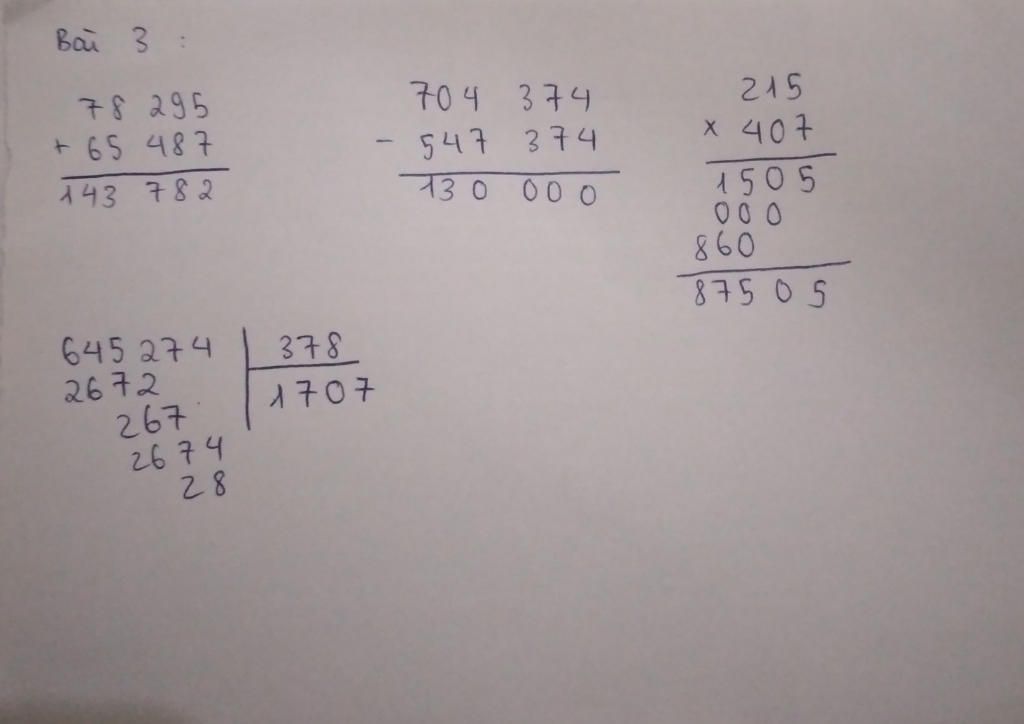 Bài 3 :
78 295
+ 65 487
143 782
704 374
- 547 374
130 000
215
x 407
1505
000
860
87505
645 274 378
2672 1707
267
2674
28